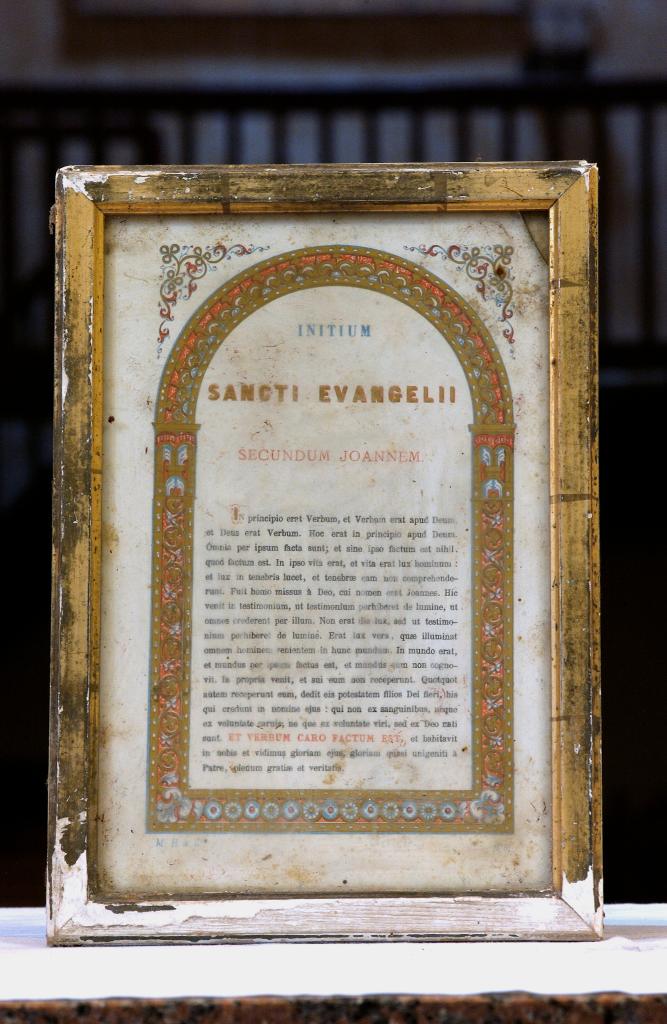 INITIUM
SANCTI EVANGELII
SECUNDUM JOANNEM.
In principio erat Verbum, et Verbum erat apud Deum,
et Deus erat Verbum. Hoc erat in principio apud Deum.
Omnia per ipsum facta sunt; et sine ipso factum est nihil
quod factum est. In ipso vita erat, et vita erat lux hominum :
et lux in tenebris lucet, et tenebræ eam non comprehende-
runt. Fuit homo missus à Deo, cui nomen erat Joannes. Hic
venit in testimonium, ut testimonium perhiberet de lumine, ut
omnes crederent per illum. Non erat ille lux, sed ut testimo-
nium perhiberet de lumine. Erat lux vera, quæ illuminat
omnem hominem venientem in hunc mundum. In mundo erat,
et mundus per ipsum factus est, et mundus eum non cogno-
vit. In propria venit, et sui eum non receperunt. Quotquot
autem receperunt eum, dedit eis potestatem filios Dei fieri, his
qui credunt in nomine ejus : qui non ex sanguinibus, neque
ex voluntate carnis, ne que ex voluntate viri, sed ex Deo nati
sunt. ET VERBUM CARO FACTUM EST, et habitavit
in nobis et vidimus gloriam ejus, gloriam quasi unigeniti à
Patre, plenum gratiæ et veritatis.